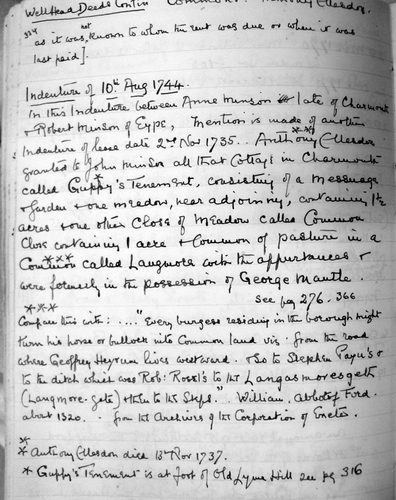 Well Head Deeds Contin
324
as it was not known to whom the rent was due or when it was
last paid].
Indenture of 10th Aug 1744.
In this Indenture between Anne Minson late of Charmouth
& Robert Minson of Eype, Mention is made of another
Indenture of lease date 2nd Nov 1735... Anthony ** Ellesdon
granted to John Minson all that Cottage in Charmouth
called Guppy's * Tenement, consisting of a Messuage
& Garden & one meadow, near adjoining, containing 1½
acres & one other Close of Meadow called Common
Close containing 1 acre & Common of pasture in a
Common *** called Langmore with the appurtenances &
were formerly in the possession of George Mantle.
See pag 276. 366
***
Compare this with: .... "Every burgess residing in the borough might
turn his horse or bullock into Common land viz. from the road
where Geoffrey Heyrum lives westward. & So to Stephen Payn's &
to the ditch which was Rob: Rossl's to the Langasmoresgeth
(Langmore-gate) & then to the Steps." William, Abbot of Ford.
about 1320. from the Archives of the Corporation of Exeter.
**
* Anthony Ellesdon died 13th Nov 1737.
* Guppy's Tenement is at foot of Old Lyme Hill see pg 316